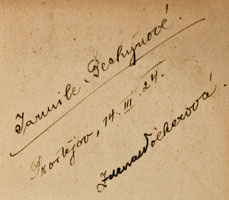 Jarmile Pechynové.
Prostějov, 14. III. 24.
Zdena Wolkerová.